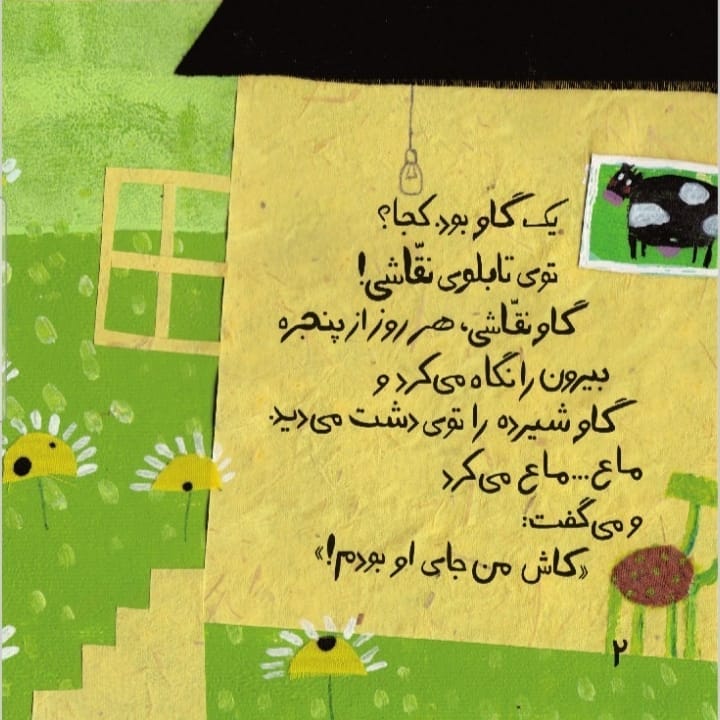 یک گاو بود. کجا؟
توی تابلوی نقّاشی!
گاو نقّاشی، هر روز از پنجره
بیرون را نگاه می‌کرد و
گاو شیرده را توی دشت می‌دید.
ماع...ماع می‌کرد
و می‌گفت:
«کاش من جای او بودم!»
۲